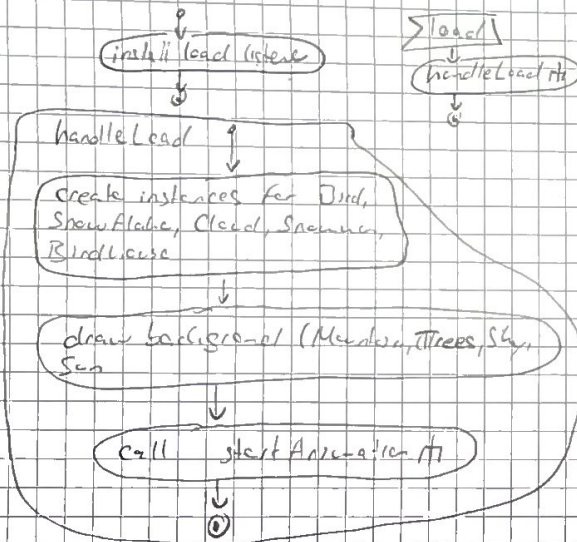 install load listener
load
handleLoad
handleLoad
create instances for Bird,
Snowflake, Cloud, Snowman,
BirdHouse
draw background (Mountain, Trees, Sky,
Sun
call startAnimation